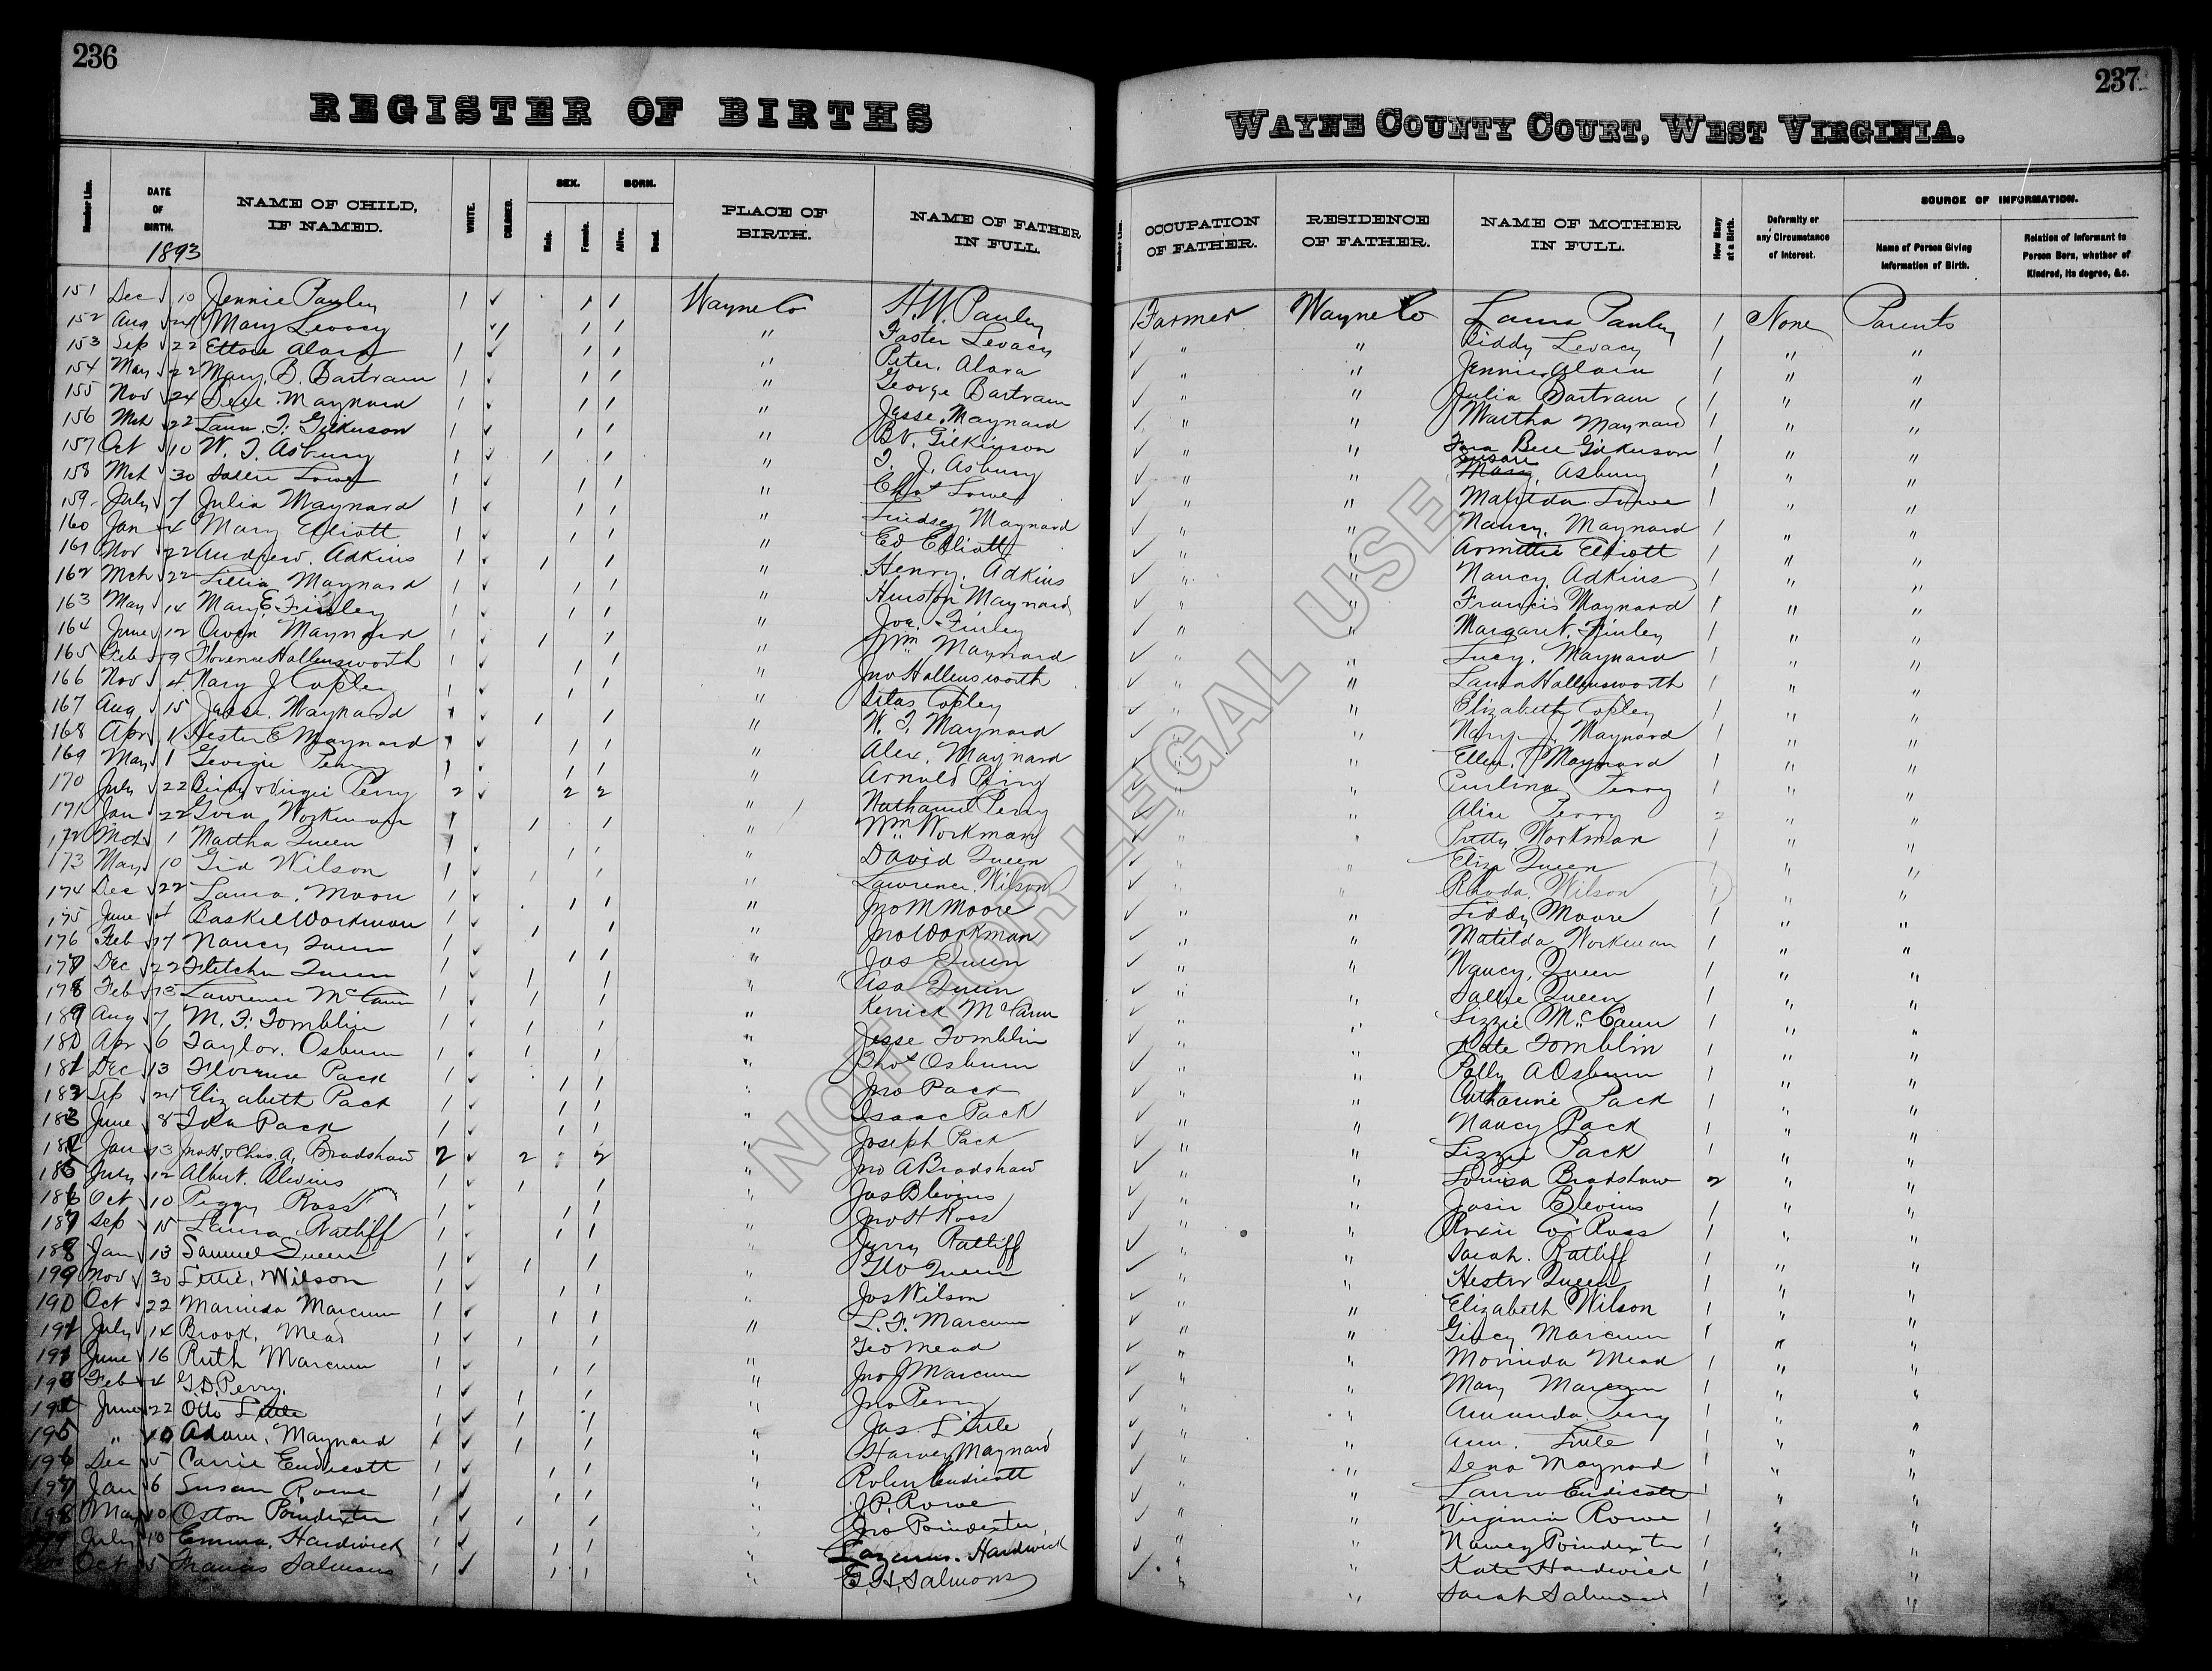 236
REGISTER OF BIRTHS
Number Line.
DATE OF BIRTH.
1893
NAME OF CHILD, IF NAMED.
WHITE.
COLORED.
SEX.
Male.
Female.
BORN.
Alive.
Dead.
PLACE OF BIRTH.
NAME OF FATHER IN FULL.
151 Dec 10 Jennie Pauley 1 1 1 Wayne Co H.W. Pauley
152 Aug 24 Mary Levacy 1 1 1 " Foster Levacy
153 Sep 22 1 1 1 " Peter Alara
154 May 22 Mary B. Bartram 1 1 1 " George Bartram
155 Nov 24 Dell Maynard 1 1 1 " Jesse Maynard
156 Mch 22 Laura F. Gilkerson 1 1 1 " Gilkinson
157 Oct 10 W. T. Asbury 1 1 1 " T. J. Asbury
158 Mch 30 Sallie Lowe 1 1 1 " Lowe
159 July 7 Julia Maynard 1 1 1 " Lindsey Maynard
160 Jan 4 Mary Elliott 1 1 1 " Ed Elliott
161 Nov 22 Andrew Adkins 1 1 1 " Henry Adkins
162 Mch 22 Maynard 1 1 1 " Huston Maynard
163 May 14 Mary E Finley 1 1 1 " Joe Finley
164 June 12 Owen Maynard 1 1 1 " Wm Maynard
165 Feb 9 Florence Hollensworth 1 1 1 " Jno Hollensworth
166 Nov 4 Mary J Copley 1 1 1 " Silas Copley
167 Aug 15 Jesse Maynard 1 1 1 " W. T. Maynard
168 Apr Hester E Maynard 1 1 1 " Alex. Maynard
169 May 1 Georgie Perry 1 1 1 " Arnold Perry
170 July 22 & Virgie Perry 2 2 2 " Nathaniel Perry
171 Jan 22 Workman 1 1 1 " Wm Workman
172 Mch 1 Martha Queen 1 1 1 " David Queen
173 May 10 Gid Wilson 1 1 1 " Lawrence Wilson
174 Dec 22 Laura Moore 1 1 1 " Jno M Moore
175 June 4 Baskel Workman 1 1 1 " Jno Workman
176 Feb 17 Nancy Queen 1 1 1 " Jas Queen
177 Dec 22 Fletcher Queen 1 1 1 " Asa Queen
178 Feb 13 Lawrence McCann 1 1 1 " Kerrick McCann
189 Aug 7 M. F. Tomblin 1 1 1 " Jesse Tomblin
180 Apr 6 Taylor Osburn 1 1 1 " Thos Osburn
181 Dec 13 Florence Pack 1 1 1 " Jno Pack
182 Sep 24 Elizabeth Pack 1 1 1 " Isaac Pack
183 June 8 Ida Pack 1 1 1 " Joseph Pack
184 Jan 13 Jno H. & Chas. A. Bradshaw 2 2 2 " Jno A Bradshaw
185 July 12 Albert Blevins 1 1 1 " Jas Blevins
186 Oct 10 Peggy Ross 1 1 1 " Jno H Ross
187 Sep 15 Laura Ratliff 1 1 1 " Jerry Ratliff
188 Jan 13 Samuel Queen 1 1 1 " Geo Queen
199 Nov 30 Wilson 1 1 1 " Jas Wilson
190 Oct 22 Marinda Marcum 1 1 1 " L. F. Marcum
191 July 14 Brook Mead 1 1 1 " Geo Mead
191 June 16 Ruth Marcum 1 1 1 " Jno J Marcum
193 Feb 4 G.D. Perry 1 1 1 " Jno Perry
194 June 22 Otto Little 1 1 1 " Jas. Little
195 " 10 Adam Maynard 1 1 1 " Harvey Maynard
196 Dec 5 Carrie Endicott 1 1 1 " Endicott
197 Jan 6 Susan Rowe 1 1 1 " J.P. Rowe
198 May 10 Oston Poindexter 1 1 1 " Jno Poindexter
July 10 Emma Hardwick 1 1 1 " Hardwick
Oct 5 Francis Salmons 1 1 1 " Salmons
237
WAYNE COUNTY COURT, WEST VIRGINIA.
Number Line.
OCCUPATION OF FATHER.
RESIDENCE OF FATHER.
NAME OF MOTHER IN FULL.
How Many at a Birth.
Deformity or any Circumstance of Interest.
SOURCE OF INFORMATION.
Name of Person Giving Information of Birth.
Relation of Informant to Person Born, whether of Kindred, its degree, &c.
Farmer Wayne Co Laura Pauley 1 None Parents
" " Biddy Levacy 1 " "
" " Jennie Alara 1 " "
" " Julia Bartram 1 " "
" " Martha Maynard 1 " "
" " Bell Gilkerson 1 " "
" " Asbury 1 " "
" " Matilda Lowe 1 " "
" " Nancy Maynard 1 " "
" " Armittie Elliott 1 " "
" " Nancy Adkins 1 " "
" " Francis Maynard 1 " "
" " Margaret Finley 1 " "
" " Lucy Maynard 1 " "
" " Laura Hollensworth 1 " "
" " Elizabeth Copley 1 " "
" " Maynard 1 " "
" " Ellen Maynard 1 " "
" " Perry 1 " "
" " Alice Perry 2 " "
" " Workman 1 " "
" " Eliza Queen 1 " "
" " Rhoda Wilson 1 " "
" " Liddy Moore 1 " "
" " Matilda Workman 1 " "
" " Nancy Queen 1 " "
" " Sallie Queen 1 " "
" " Lizzie McCann 1 " "
" " Kate Tomblin 1 " "
" " Polly A Osburn 1 " "
" " Catharine Pack 1 " "
" " Nancy Pack 1 " "
" " Lizzie Pack 1 " "
" " Louisa Bradshaw 2 " "
" " Josie Blevins 1 " "
" " Roxie Ross 1 " "
" " Sarah Ratliff 1 " "
" " Hester Queen 1 " "
" " Elizabeth Wilson 1 " "
" " Marcum 1 " "
" " Morinda Mead 1 " "
" " Mary Marcum 1 " "
" " Amanda Perry 1 " "
" " Ann Little 1 " "
" " Sena Maynard 1 " "
" " Laura Endicott 1 " "
" " Virginia Rowe 1 " "
" " Nancy Poindexter 1 " "
" " Kate Hardwick 1 " "
" " Sarah Salmons 1 " "
NOT FOR LEGAL USE